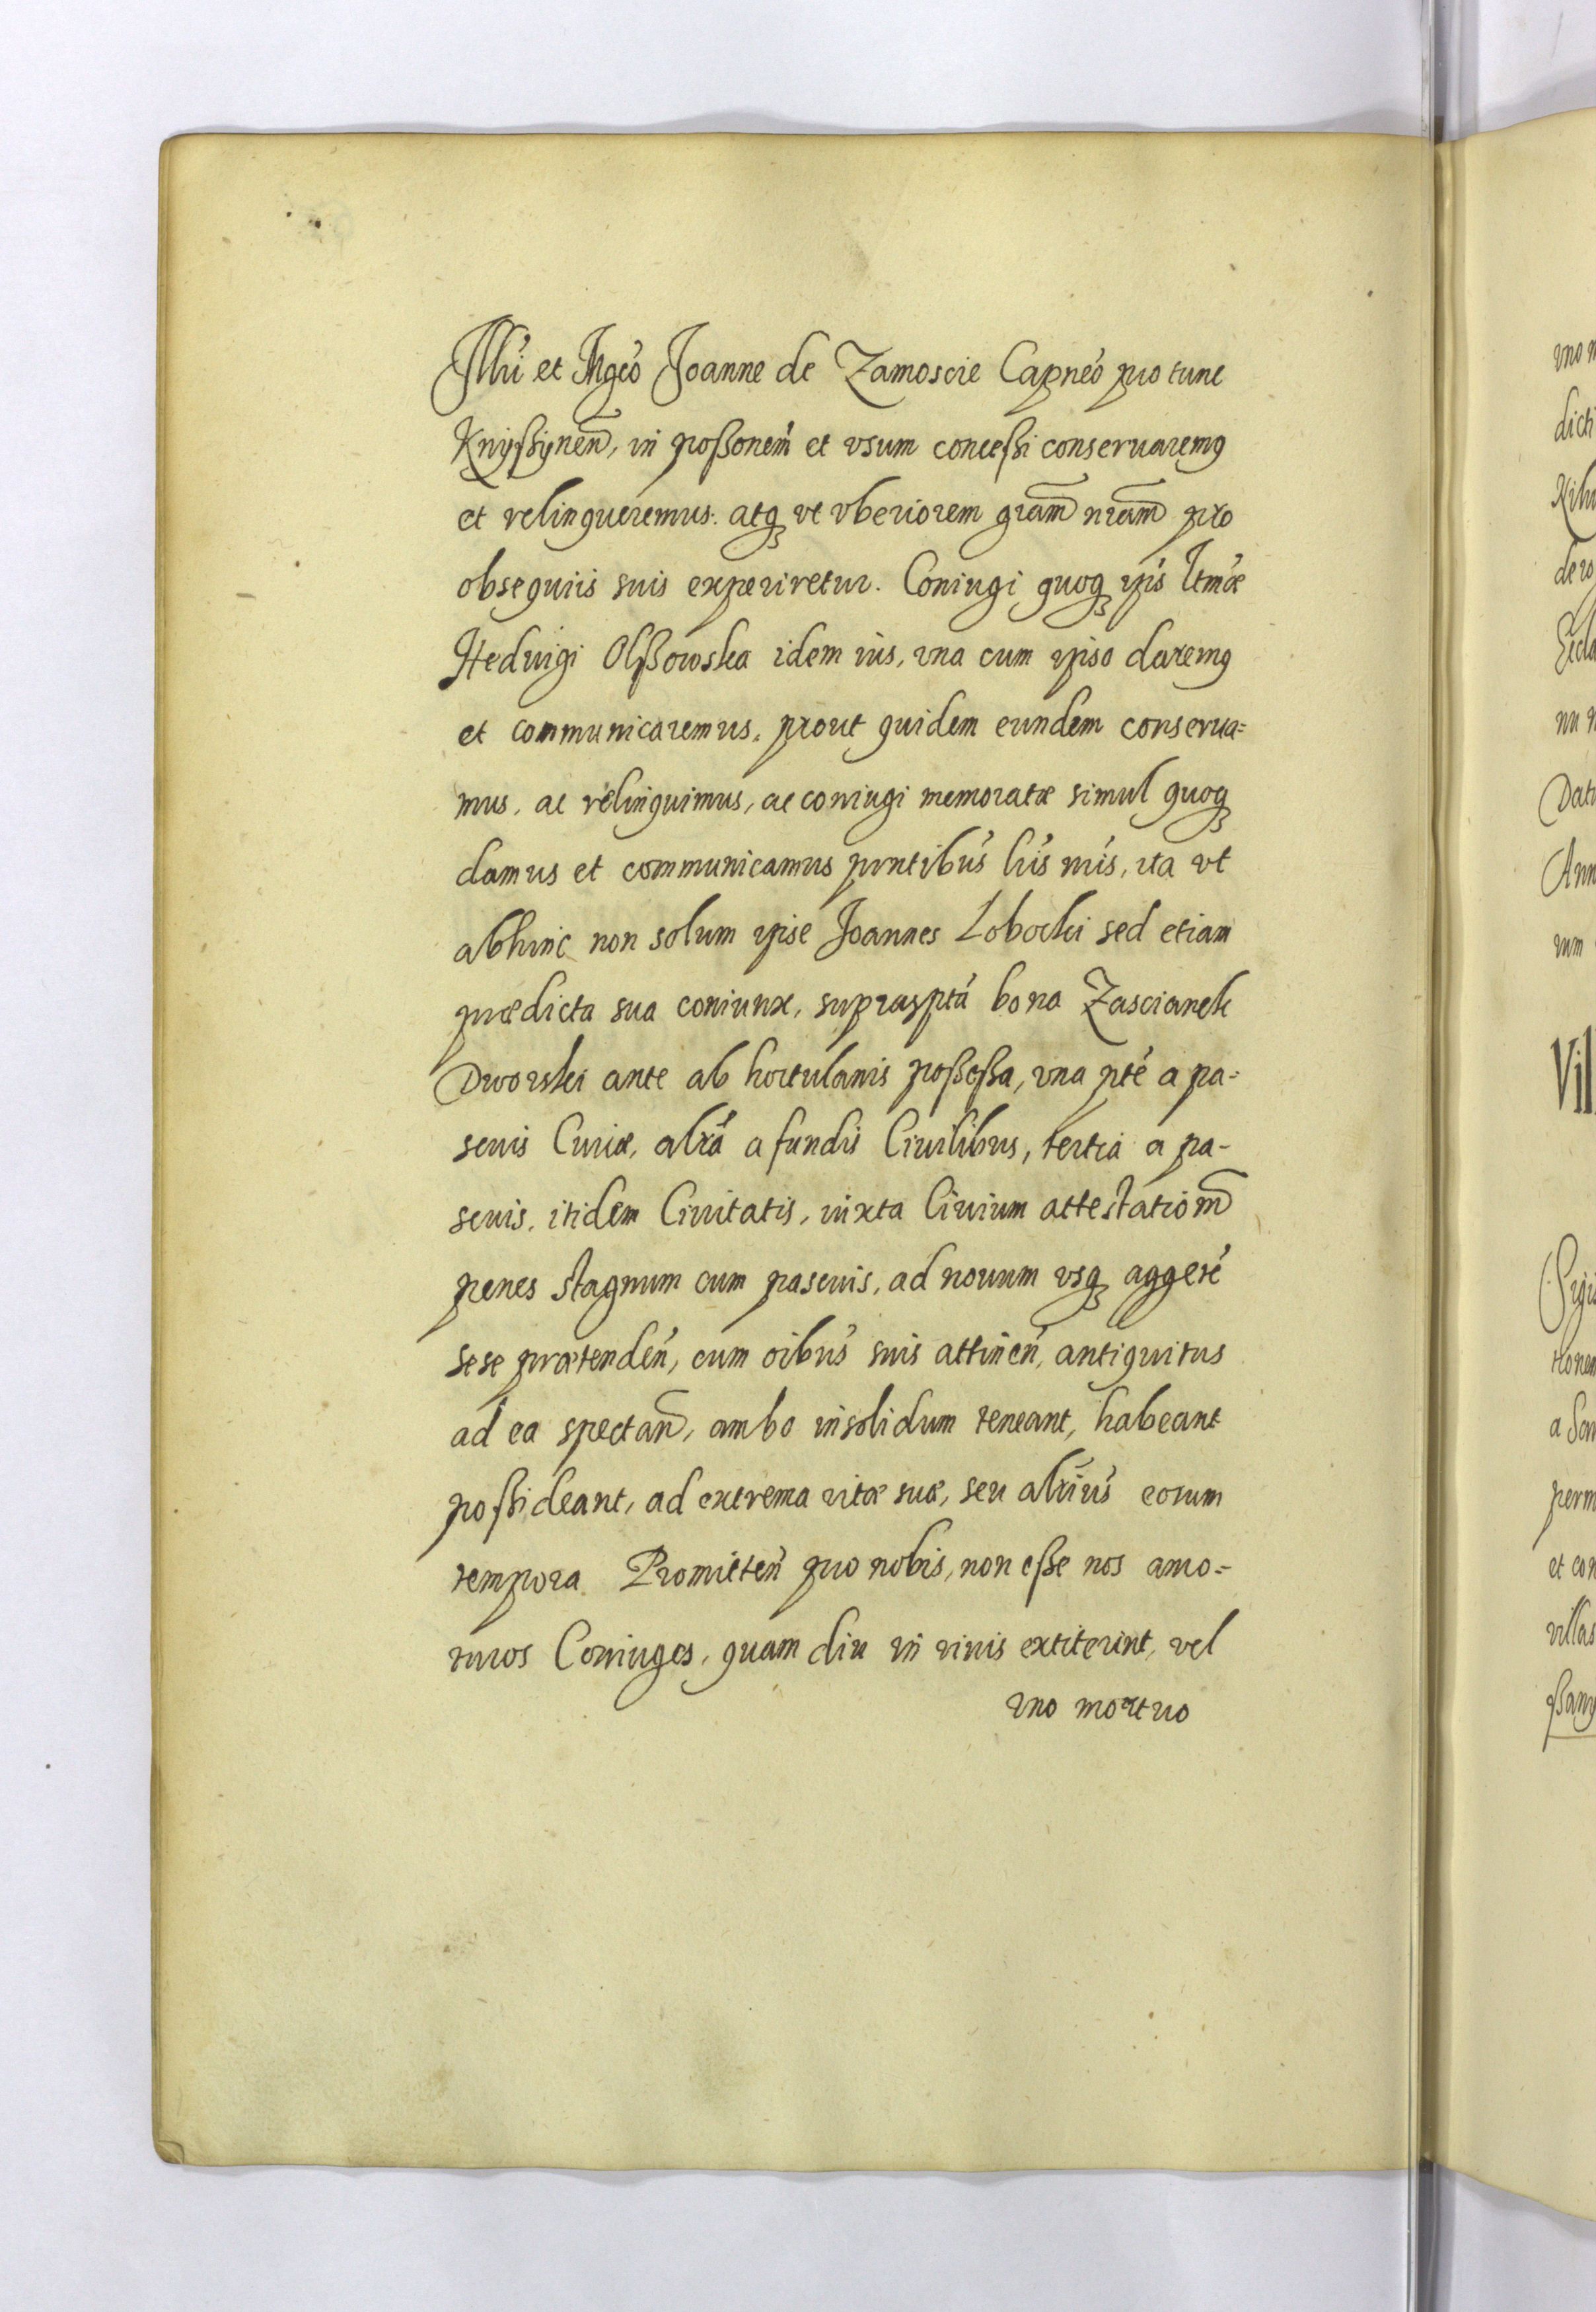 Illri et Mgco Joanne de Zamoscie Capneo pro tunc
Knÿssÿnen, in possonem et vsum concessi conseruaremꝰ
et relinqueremus. atqꝫ vt vberiorem gram nram pro
obsequiis suis experiretur. Coniugi quoqꝫ ipis ltmæ
Heduigi Olssowska idem ius, vna cum ipso daremꝰ
et communicaremus. prout quidem eundem conserua=
mus, ac relinquimus, ac coniugi memoratæ simul quoqꝫ
damus et communicamus pntibus lris nris, ita vt
abhinc non solum ipse Joannes Lobocki sed etiam
prædicta sua coniunx, suprasptá bona Zascianek
Dworski ante ab hortulanis possessa, vna pte a pa=
scuis Curiæ, altra a fundis Ciuilibus, tertia a pa-
scuis, itidem Ciuitatis, iuxta Ciuium attestationem
penes stagnum cum pascuis, ad nouum vsqꝫ aggere
sese prætenden, cum oibus suis attinen, antiquitus
ad ea spectan, ambo insolidum teneant, habeant
possideant, ad extrema vitæ suæ, seu altrius eorum
tempora. Promitten pro nobis, non esse nos amo=
turos Coniuges, quam diu in viuis extiterint, vel
vno mortuo